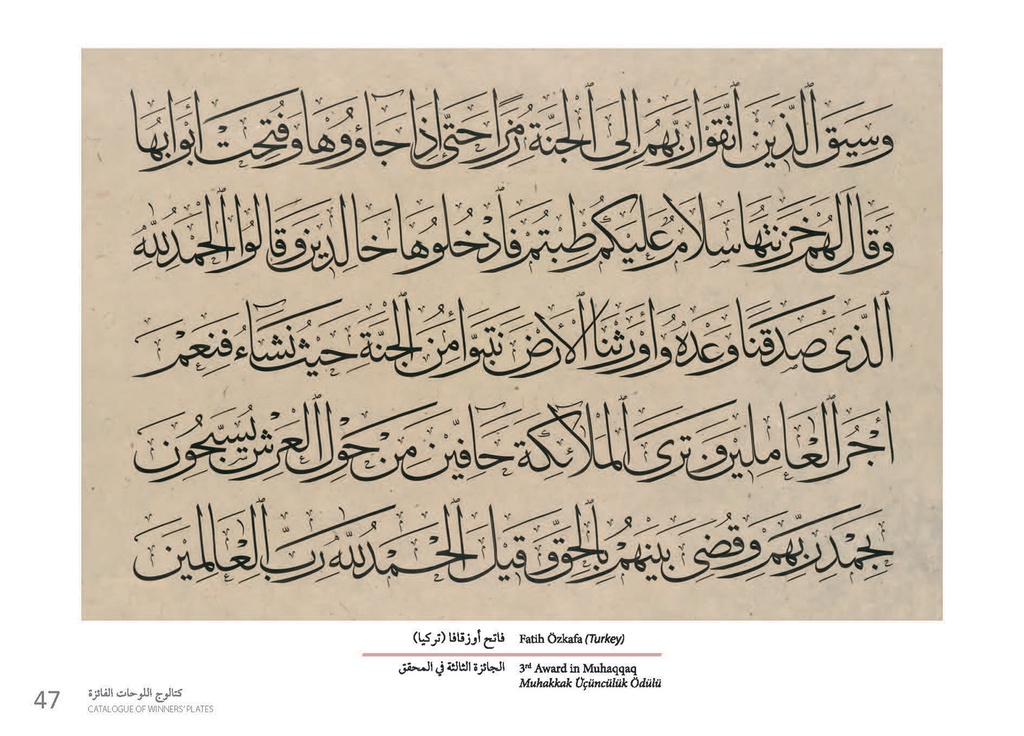 وسيق الذين اتقوا ربهم إلى الجنة زمرا حتى إذا جاؤوها وفتحت ابوابها
وقال لهم خزنتها سلام عليكم طبتم فادخلوها خالدين وقالوا الحمد لله
الذي صدقنا وعده وأورثنا الارض نتبوأ من الجنة حيث نشاء فنعم
اجر العاملين وترى الملائكة حافين من حول العرش يسبحون
بحمد ربهم وقضي بينهم بالحق وقيل الحمد لله رب العالمين
فاتح أوزقافا (تركيا) Fatih Özkafa (Turkey)
الجائزة الثالثة في المحقق 3rd Award in Muhaqqaq
Muhakkak Üçüncülük Ödülü
47 كتالوج اللوحات الفائزة
CATALOGUE OF WINNERS' PLATES